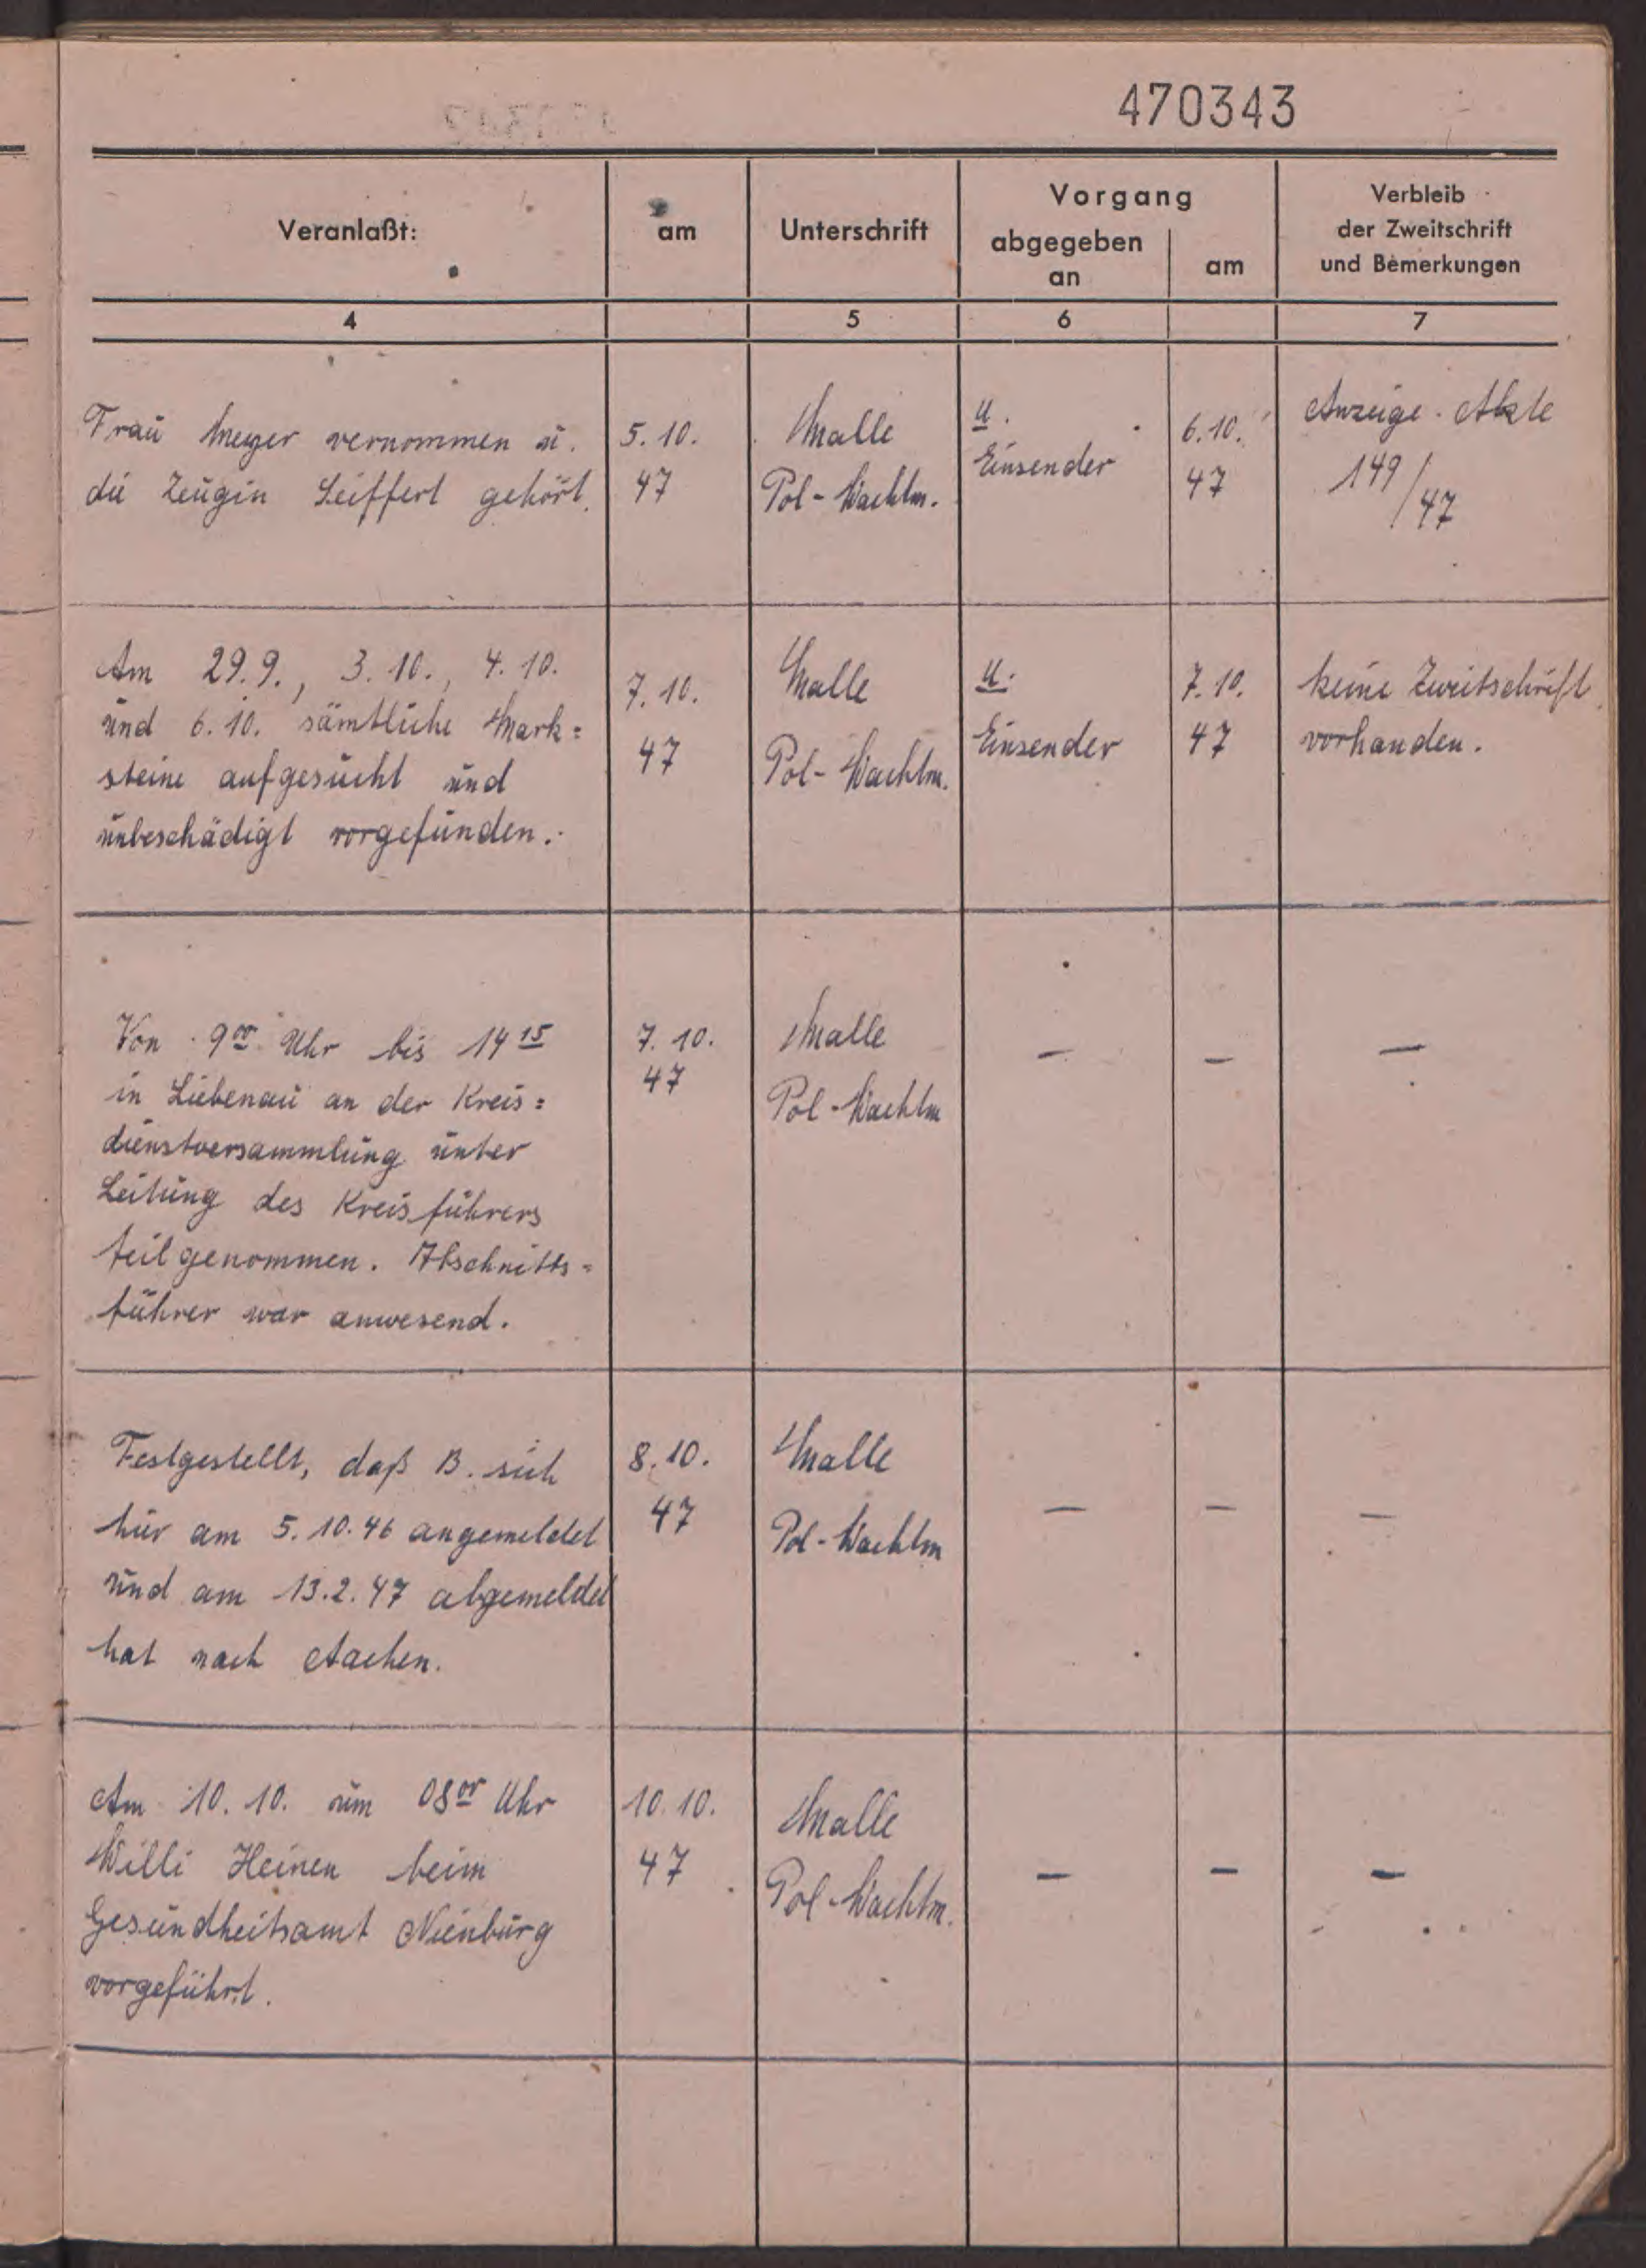 470343
Veranlaßt:
am
Unterschrift
Vorgang
abgegeben
an
am
Verbleib
der Zweitschrift
und Bemerkungen
4
5
6
7
Frau Meyer vernommen u.
die Zeugin Seiffert gehört.
5. 10.
47
Malle
Pol-Wachtm.
U.
Einsender
6.10.
47
Anzeige. Akte
149/47
Am 29.9., 3.10., 4.10.
und 6.10. sämtliche Mark=
steine aufgesucht und
unbeschädigt vorgefunden.
7.10.
47
Malle
Pol-Wachtm.
U.
Einsender
7.10.
47
keine Zweitschrift
vorhanden.
Von 9 00 Uhr bis 14 15
in Liebenau an der Kreis=
dienstversammlung unter
Leitung des Kreisführers
teilgenommen. Abschnitts=
führer war anwesend.
7. 10.
47
Malle
Pol-Wachtm
—
—
—
Festgestellt, daß B. sich
hier am 5.10.46 angemeldet
und am 13.2.47 abgemeldet
hat nach Aachen.
8.10.
47
Malle
Pol-Wachtm
—
—
—
Am 10. 10. um 08 00 Uhr
Willi Heinen beim
Gesundheitsamt Nienburg
vorgeführt.
10.10.
47
Malle
Pol-Wachtm.
—
—
—